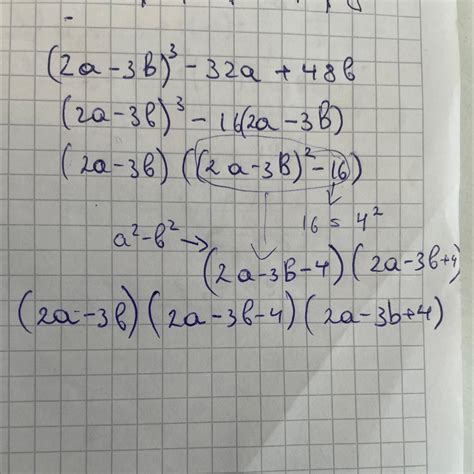 (2a-3b)³ - 32a + 48b
(2a-3b)³ - 16(2a-3b)
(2a-3b)((2a-3b)²-16)
16 = 4²
a²-b² → (2a-3b-4)(2a-3b+4)
(2a-3b)(2a-3b-4)(2a-3b+4)